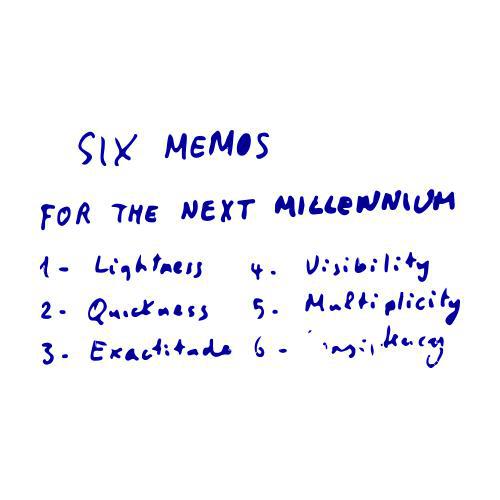 SIX MEMOS
FOR THE NEXT MILLENNIUM
1- Lightness
2- Quickness
3- Exactitude
4- Visibility
5- Multiplicity
6-